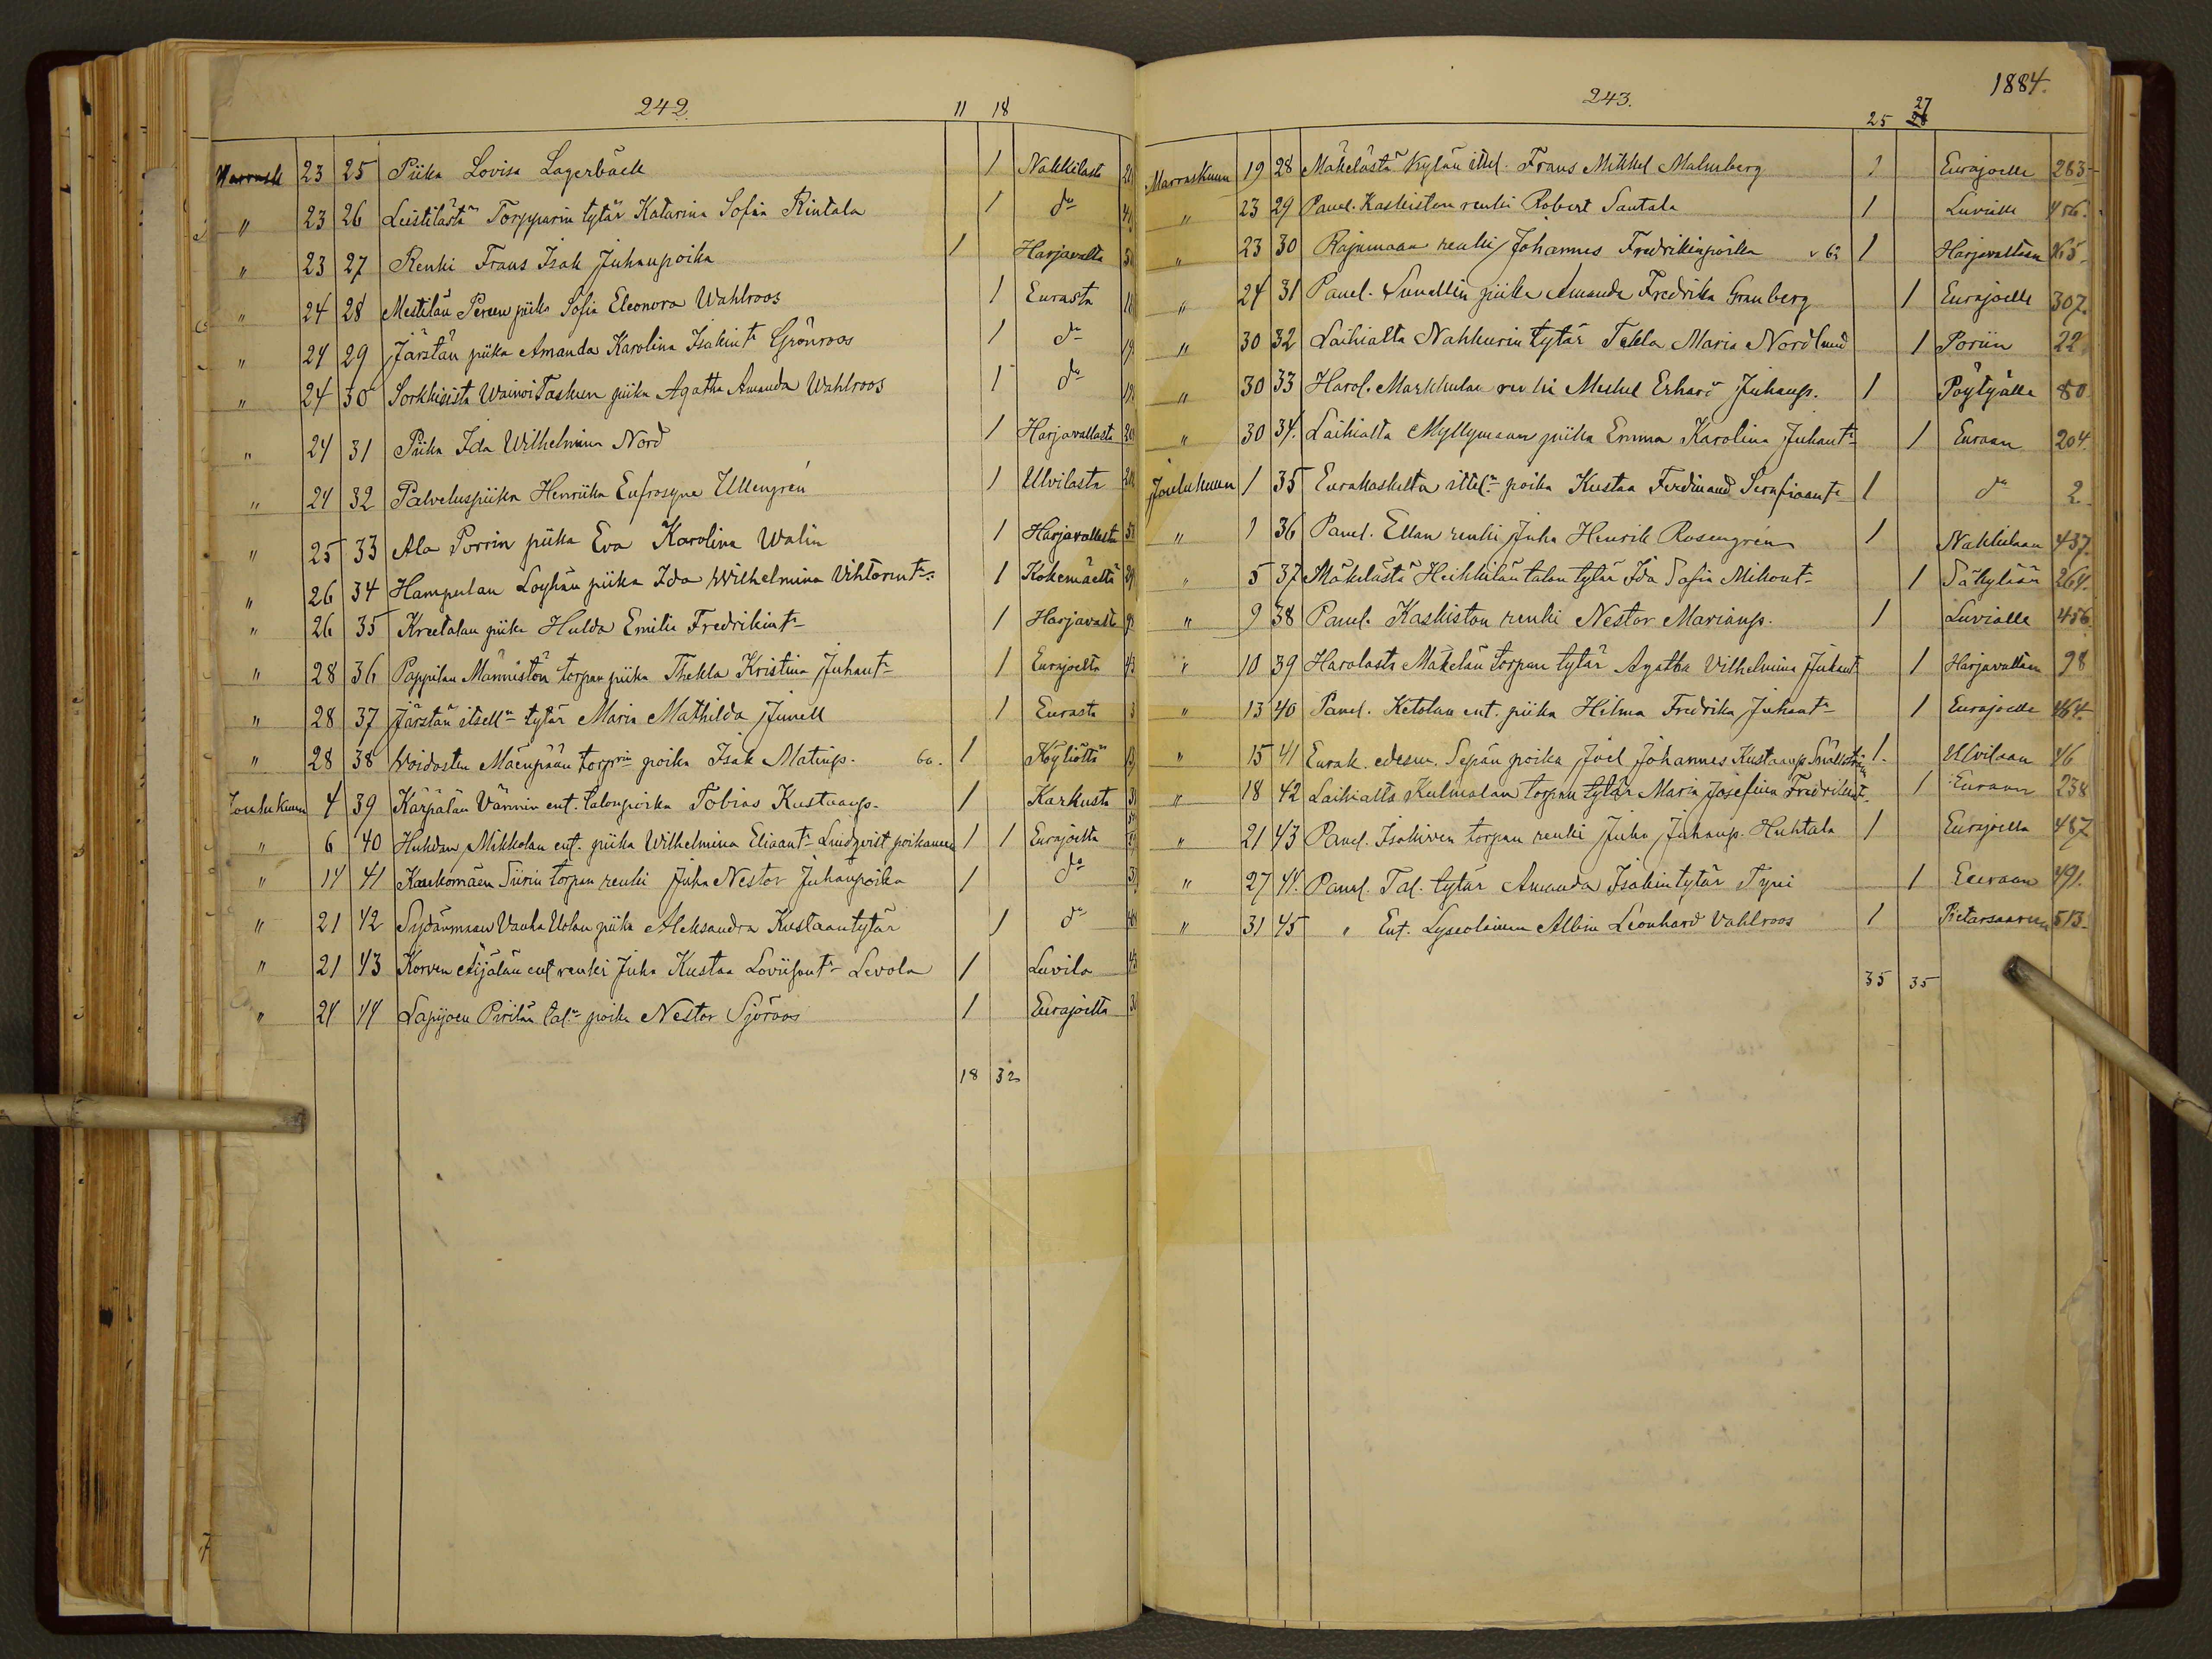 242.
11 18
Marrask 23 25 Piika Lovisa Lagerbäck 1 Nakkilasta
" 23 26 Leistilästä Torpparin tytär Katarina Sofia Rintala 1 do
" 23 27 Renki Frans Isak Juhanpoika 1 Harjavalta
" 24 28 Mestilän Pereen piika Sofia Eleonora Wahlroos 1 Eurasta
" 24 29 Järstän piika Amanda Karolina Isakint. Grönroos 1 do
" 24 30 Sorkkisista Wainoi Taskun piika Agatha Amanda Wahlroos 1 do
" 24 31 Piika Ida Wilhelmina Nord 1 Harjavallasta
" 24 32 Palveluspiika Henriika Eufrosyne Ullengren 1 Ulvilasta
" 25 33 Ala Porrin piika Eva Karolina Walin 1 Harjavallasta
" 26 34 Hampulan Löyhän piika Ida Wilhelmina Vihtorint. 1 Kokemäeltä
" 26 35 Kreetalan piika Hulda Emilia Fredrikint. 1 Harjavasta
" 28 36 Pappilan Männistön torpan piika Thekla Kristina Juhant. 1 Eurajoelta
" 28 37 Järstän itsell. tytär Maria Mathilda Junell 1 Eurasta
" 28 38 Woidosten Mäenpään torprin poika Isak Matinp. 60. 1 Köyliöstä
Joulukuun 4 39 Kärpälän Värrin ent. talonpoika Tobias Kustaanp. 1 Karkusta
" 6 40 Huhdan Mikkolan ent. piika Wilhelmina Eliaant. Lindqvist poikaneen 1 1 Eurajoelta
" 14 41 Kaukomäen Siirin torpan renki Juha Nestor Juhanpoika 1 do
" 21 42 Sydänmaan Vanha Uolan piika Aleksandra Kustaantytär 1 do
" 21 43 Korven Äijälän ent renki Juha Kustaa Loviisant. Levola 1 Luvila
" 24 44 Lapijoen Pirilän tal. poika Nestor Sjöroos 1 Eurajoelta
18 32
1884.
243.
25 27
Marraskuun 19 28 Mäkelästä Kylän ittel. Frans Mikkel Malmberg 1 Eurajoelle 283
" 23 29 Panel. Kaskiston renki Robert Santala 1 Luvialle 456.
" 23 30 Rajumaan renki Johannes Fredrikinpoika v 62 1 Harjavaltaan
" 24 31 Panel. Suvallin piika Amanda Fredrika Granberg 1 Eurajoelle 307.
" 30 32 Laihialta Nahkurin tytär Tekla Maria Nordlund 1 Poriin 22
" 30 33 Harol. Markkulan renki Mikkel Erhard Juhanp. 1 Pöytyälle 80
" 30 34. Laihialta Myllymaan piika Emma Karolina Juhant. 1 Euraan 204.
Joulukuun 1 35 Eurakoskelta ittel. poika Kustaa Ferdinand Serafiaant. 1 do 2.
" 1 36 Panel. Ellan renki Juha Henrik Rosengren 1 Nakkilaan 437.
" 5 37 Mäkelästä Heikkilän talon tytär Ida Sofia Mikont. 1 Säkylään 264.
" 9 38 Panel. Kaskiston renki Nestor Marianp. 1 Luvialle 456
" 10 39 Harolasta Mäkelän torpan tytär Agatha Vilhelmina Juhant. 1 Harjavaltaan 98
" 13 40 Panel. Ketolan ent. piika Hilma Fredrika Juhant. 1 Eurajoelle 464.
" 15 41 Eurak. edesm. Sepän poika Joel Johannes Kustaanp. 1. Ulvilaan 46
" 18 42 Laihialta Kulmalan torpan tytär Maria Josefina Fredrikint. 1 Euraan 238
" 21 43 Panel. Isokiven torpan renki Juha Juhanp. Huhtala 1 Eurajoella 487
" 27 44. Panel. Tal. tytär Amanda Isakintytär Tyni 1 Euraan 491.
" 31 45 " Ent. Lyseolainen Albin Leonhard Vahlroos 1 Pietarsaareen 513.
35 35